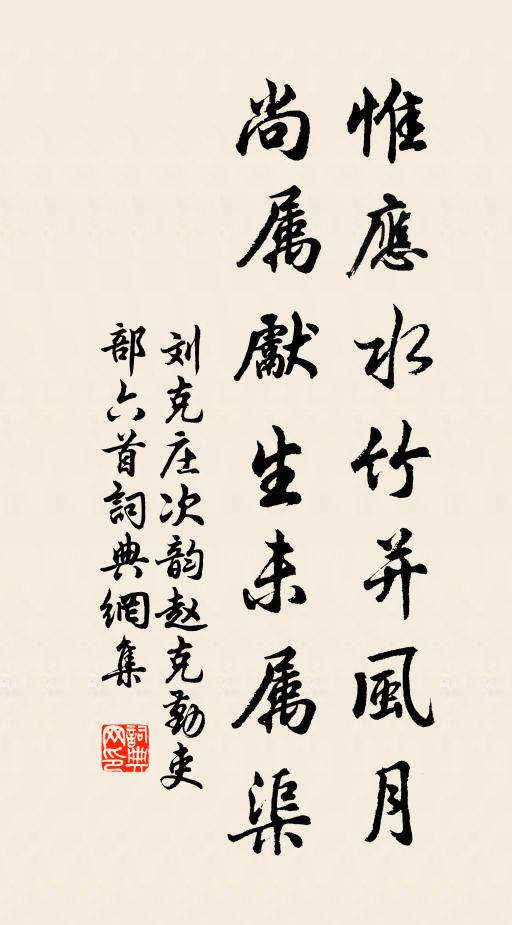 惟應水竹并風月
尚属獻生未属渠
刘克庄次韵赵克勤吏
部六首詞典網集
詞典
网印